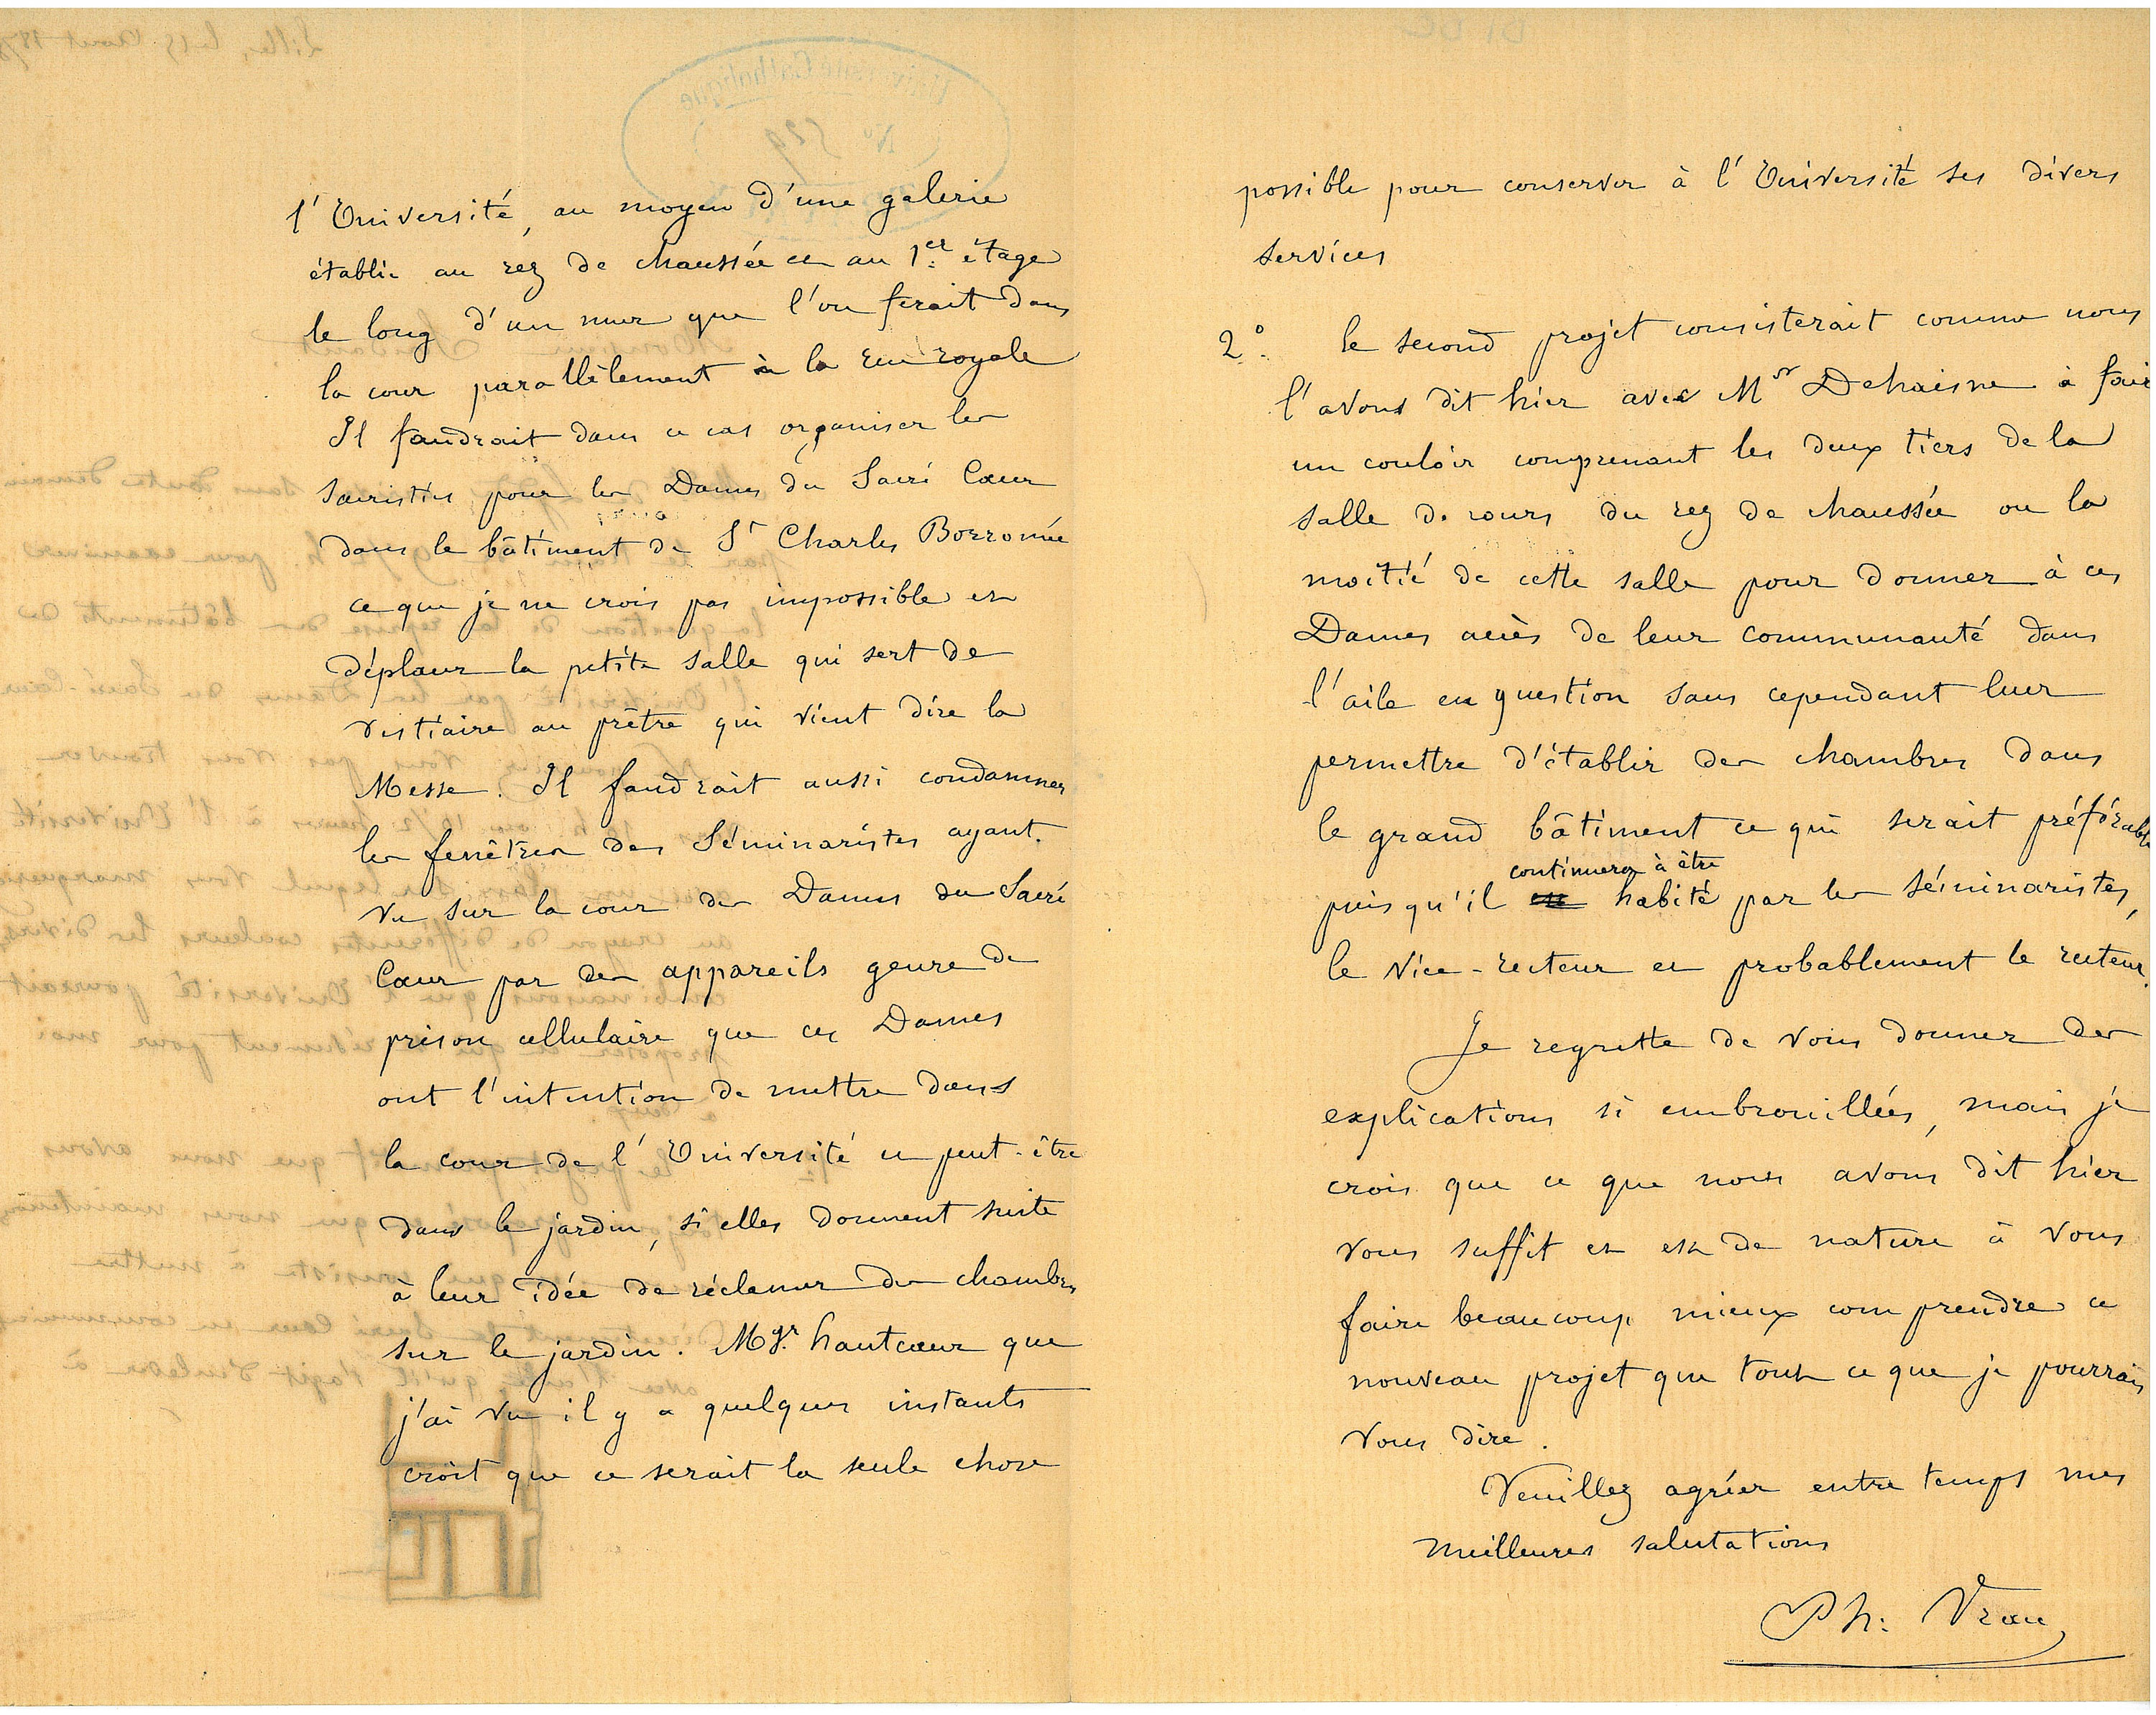 l'Université, au moyen d'une galerie
établie au rez de chaussée et au 1er étage
le long d'un mur que l'on ferait dans
la cour parallèlement à la rue royale
Il faudrait dans ce cas organiser les
sacristies pour les Dames du Sacré Cœur
dans le bâtiment de St Charles Borromée
ce que je ne crois pas impossible et
déplacer la petite salle qui sert de
vestiaire au prêtre qui vient dire la
Messe. Il faudrait aussi condamner
les fenêtres des Séminaristes ayant
vu sur la cour des Dames du Sacré
Cœur par des appareils genre de
prison cellulaire que ces Dames
ont l'intention de mettre dans
la cour de l'Université et peut-être
dans le jardin, si elles donnent suite
à leur idée de réclamer des chambres
sur le jardin. Mgr. hautcœur que
j'ai vu il y a quelques instants
croit que ce serait la seule chose
possible pour conserver à l'Université ses divers
services
2° le second projet consisterait comme nous
l'avons dit hier avec Mr Dehaisne à fair
un couloir comprenant les deux tiers de la
salle de cours du rez de chaussée ou la
moitié de cette salle pour donner à ces
Dames accès de leur communauté dans
l'aile en question sans cependant leur
permettre d'établir des chambres dans
le grand bâtiment ce qui serait préférable
continuera à être
puisqu'il est habité par les séminaristes,
le Vice-recteur et probablement le recteur.
Je regrette de vous donner des
explications si embrouillées, mais je
crois que ce que nous avons dit hier
vous suffit et est de nature à vous
faire beaucoup mieux comprendre ce
nouveau projet que tout ce que je pourrais
vous dire.
Veuillez agréer entre temps mes
meilleures salutations
Ph: Vrau